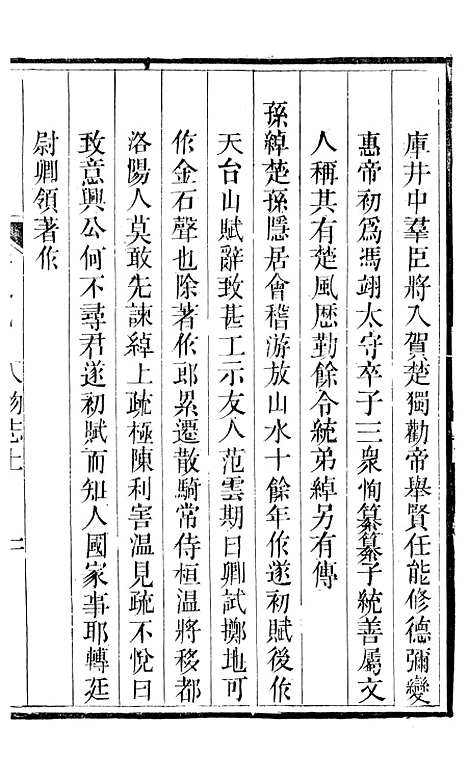 庫井中羣臣將入賀楚獨勸帝舉賢任能修德彌變
惠帝初爲馮翊太守卒子三衆恂纂纂子統善屬文
人稱其有楚風歷勤餘令統弟綽另有傳
孫綽楚孫隱居會稽游放山水十餘年作遂初賦後作
天台山賦辭致甚工示友人范雲期曰卿試擲地可
作金石聲也除著作郎累遷散騎常侍桓温將移都
洛陽人莫敢先諫綽上疏極陳利害温見疏不悅曰
致意興公何不尋君遂初賦而知人國家事耶轉廷
尉卿領著作
人物志上